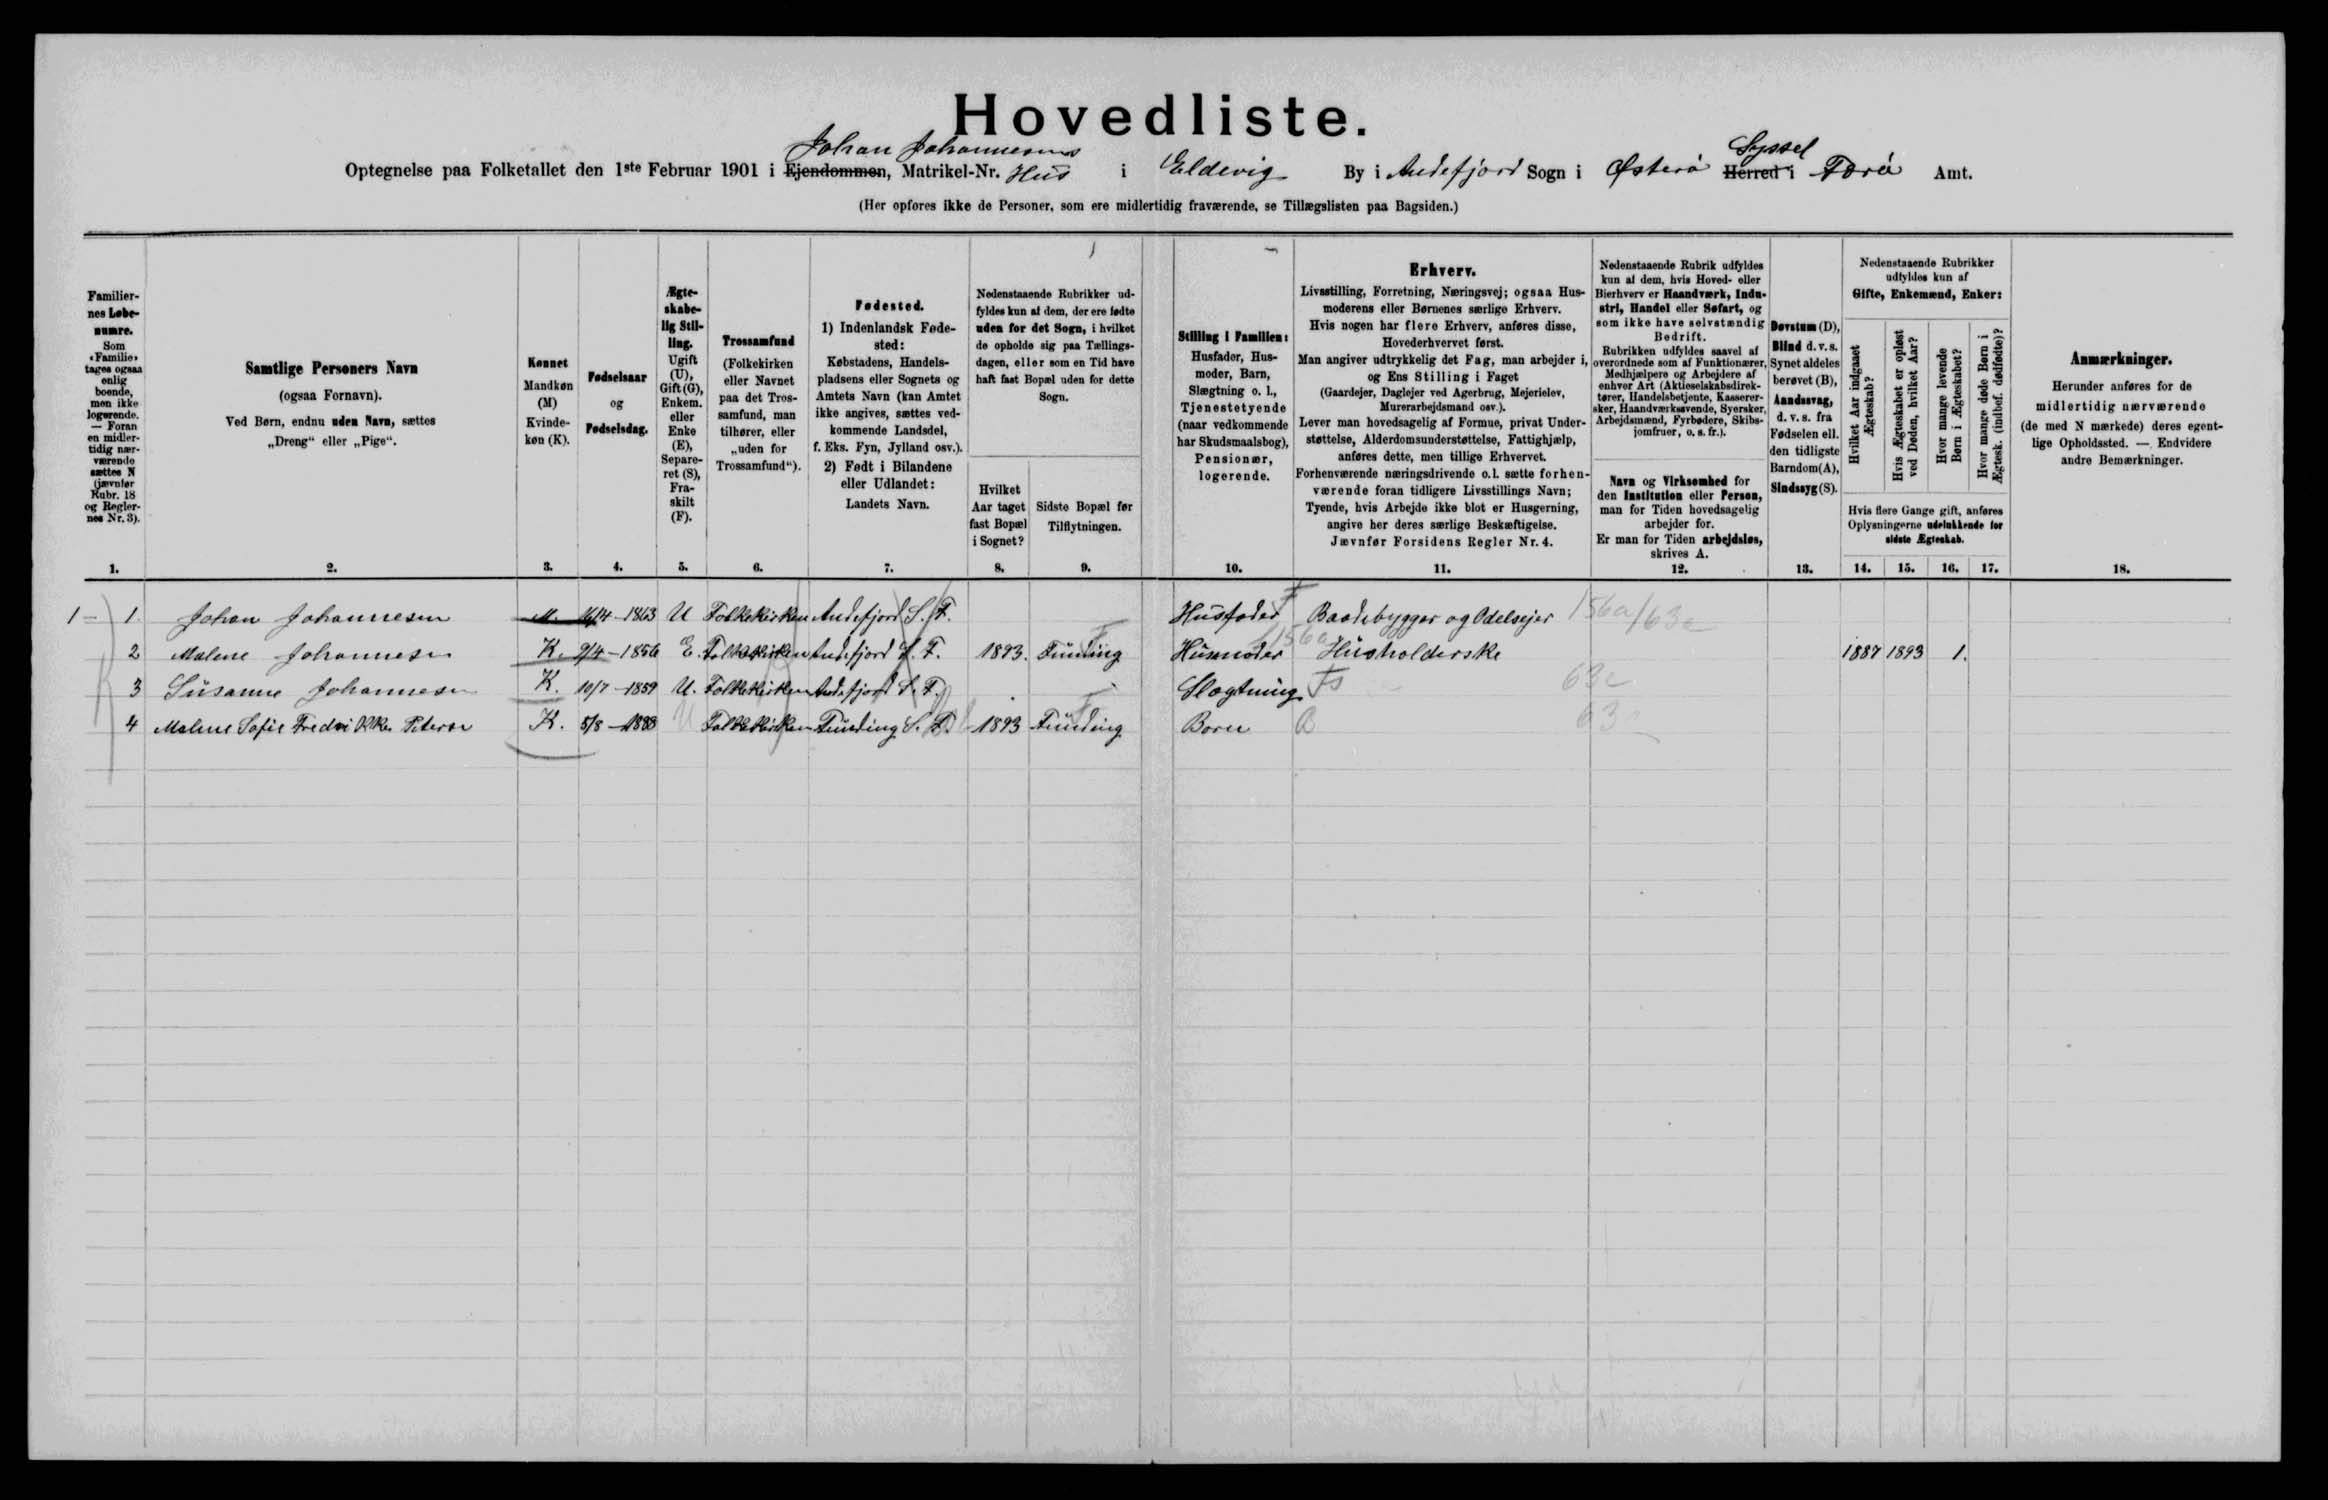 Hovedliste.
Johan Johannesens Syssel
Optegnelse paa Folketallet den 1ste Februar 1901 i Ejendommen, Matrikel-Nr. Hus i Eldevig By i Andefjord Sogn i Østerø Herred i Færø Amt.
(Her opføres ikke de Personer, som ere midlertidig fraværende, se Tillægslisten paa Bagsiden.)
Familiernes Løbenumre.
Som «Familie» tages ogsaa enlig boende, men ikke logerende. — Foran en midlertidig nærværende sættes N (jævnfør Rubr. 18 og Reglernes Nr. 3).
1.
Samtlige Personers Navn
(ogsaa Fornavn).
Ved Børn, endnu uden Navn, sættes
„Dreng“ eller „Pige“.
2.
Kønnet
Mandkøn
(M)
Kvinde-
køn (K).
3.
Fødselsaar
og
Fødselsdag.
4.
Ægte-
skabe-
lig Stil-
ling.
Ugift
(U),
Gift (G),
Enkem.
eller
Enke
(E),
Separe-
ret (S),
Fra-
skilt
(F).
5.
Trossamfund
(Folkekirken
eller Navnet
paa det Tros-
samfund, man
tilhører, eller
„uden for
Trossamfund“).
6.
Fødested.
1) Indenlandsk Føde-
sted:
Købstadens, Handels-
pladsens eller Sognets og
Amtets Navn (kan Amtet
ikke angives, sættes ved-
kommende Landsdel,
f. Eks. Fyn, Jylland osv.).
2) Født i Bilandene
eller Udlandet:
Landets Navn.
7.
Nedenstaaende Rubrikker ud-
fyldes kun af dem, der ere fødte
uden for det Sogn, i hvilket
de opholde sig paa Tællings-
dagen, eller som en Tid have
haft fast Bopæl uden for dette
Sogn.
Hvilket
Aar taget
fast Bopæl
i Sognet?
8.
Sidste Bopæl før
Tilflytningen.
9.
Stilling i Familien:
Husfader, Hus-
moder, Barn,
Slægtning o. l.,
Tjenestetyende
(naar vedkommende
har Skudsmaalsbog),
Pensionær,
logerende.
10.
Erhverv.
Livsstilling, Forretning, Næringsvej; ogsaa Hus-
moderens eller Børnenes særlige Erhverv.
Hvis nogen har flere Erhverv, anføres disse,
Hovederhvervet først.
Man angiver udtrykkelig det Fag, man arbejder i,
og Ens Stilling i Faget
(Gaardejer, Daglejer ved Agerbrug, Mejerielev,
Murerarbejdsmand osv.).
Lever man hovedsagelig af Formue, privat Under-
støttelse, Alderdomsunderstøttelse, Fattighjælp,
anføres dette, men tillige Erhvervet.
Forhenværende næringsdrivende o.l. sætte forhen-
værende foran tidligere Livsstillings Navn;
Tyende, hvis Arbejde ikke blot er Husgerning,
angive her deres særlige Beskæftigelse.
Jævnfør Forsidens Regler Nr. 4.
11.
Nedenstaaende Rubrik udfyldes
kun af dem, hvis Hoved- eller
Bierhverv er Haandværk, Indu-
stri, Handel eller Søfart, og
som ikke have selvstændig
Bedrift.
Rubrikken udfyldes saavel af
overordnede som af Funktionærer,
Medhjælpere og Arbejdere af
enhver Art (Aktieselskabsdirek-
tører, Handelsbetjente, Kasserer-
sker, Haandværkssvende, Syersker,
Arbejdsmænd, Fyrbødere, Skibs-
jomfruer, o. s. fr.).
Navn og Virksomhed for
den Institution eller Person,
man for Tiden hovedsagelig
arbejder for.
Er man for Tiden arbejdsløs,
skrives A.
12.
Døvstum (D),
Blind d. v. s.
Synet aldeles
berøvet (B),
Aandssvag,
d. v. s. fra
Fødselen ell.
den tidligste
Barndom (A),
Sindssyg (S).
13.
Nedenstaaende Rubrikker
udfyldes kun af
Gifte, Enkemænd, Enker:
Hvilket Aar indgaaet Ægteskab?
Hvis Ægteskabet er opløst ved Døden, hvilket Aar?
Hvor mange levende Børn i Ægteskabet?
Hvor mange døde Børn i Ægtesk. (indbef. dødfødte)?
Hvis flere Gange gift, anføres
Oplysningerne udelukkende for
sidste Ægteskab.
14. 15. 16. 17.
Anmærkninger.
Herunder anføres for de
midlertidig nærværende
(de med N mærkede) deres egent-
lige Opholdssted. — Endvidere
andre Bemærkninger.
18.
1 – 1. Johan Johannesen M. 16/4-1863 U Folkekirken Andefjord S. F. Husfader F Baadebygger og Odelsejer 156a/63a
2 Malene Johannesen K. 9/4-1856 E. Folkekirken Andefjord S. F. 1893. Funding Husmoder Husholderske 1887 1893 1.
3 Susanne Johannesen K. 10/7-1859 U. Folkekirken Andefjord S. F. Slægtning Fs 63c
4 Malene Sofie Fredrikke Petersen K. 5/8-1888 U Folkekirken Funding S. F. 1893 Funding Børn B 63